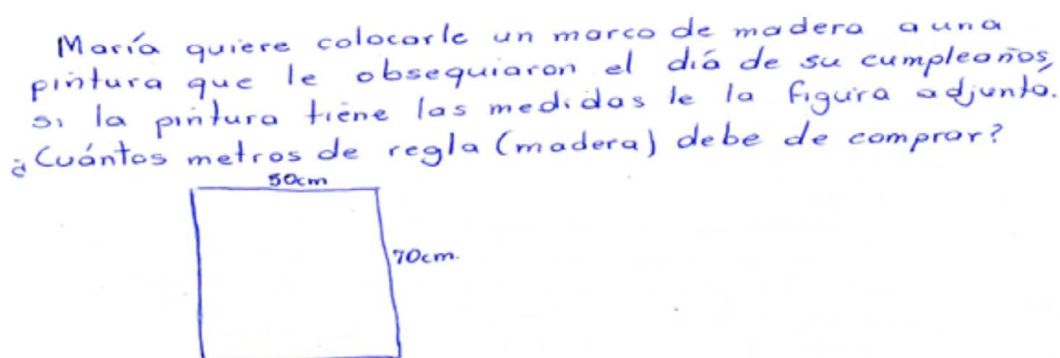 María quiere colocarle un marco de madera a una
pintura que le obsequiaron el día de su cumpleaños,
si la pintura tiene las medidas le la figura adjunta.
¿Cuántos metros de regla (madera) debe de comprar?
50cm
70cm.